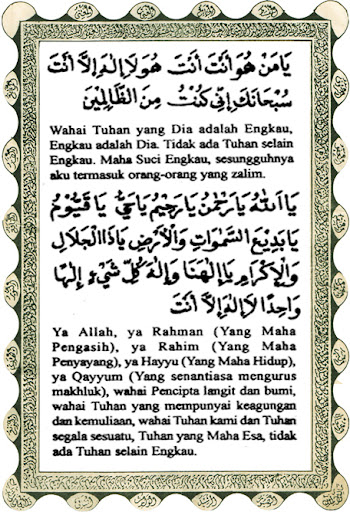 يَا مَنْ هُوَ أَنْتَ أَنْتَ هُوَ لَا إِلٰهَ إِلَّا أَنْتَ
سُبْحَانَكَ إِنِّي كُنْتُ مِنَ الظَّالِمِينَ
Wahai Tuhan yang Dia adalah Engkau,
Engkau adalah Dia. Tidak ada Tuhan selain
Engkau. Maha Suci Engkau, sesungguhnya
aku termasuk orang-orang yang zalim.
يَا اَللّٰهُ يَا رَحْمٰنُ يَا رَحِيْمُ يَا حَيُّ يَا قَيُّوْمُ
يَا بَدِيْعَ السَّمٰوَاتِ وَالْاَرْضِ يَا ذَا الْجَلَالِ
وَالْاِكْرَامِ يَا اِلٰهَنَا وَاِلٰهَ كُلِّ شَيْءٍ اِلٰهًا
وَاحِدًا لَا اِلٰهَ اِلَّا اَنْتَ
Ya Allah, ya Rahman (Yang Maha
Pengasih), ya Rahim (Yang Maha
Penyayang), ya Hayyu (Yang Maha Hidup),
ya Qayyum (Yang senantiasa mengurus
makhluk), wahai Pencipta langit dan bumi,
wahai Tuhan yang mempunyai keagungan
dan kemuliaan, wahai Tuhan kami dan Tuhan
segala sesuatu, Tuhan yang Maha Esa, tidak
ada Tuhan selain Engkau.